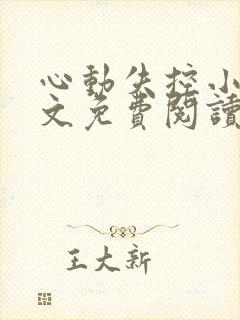 心動失控小
文免費閱讀
王大新